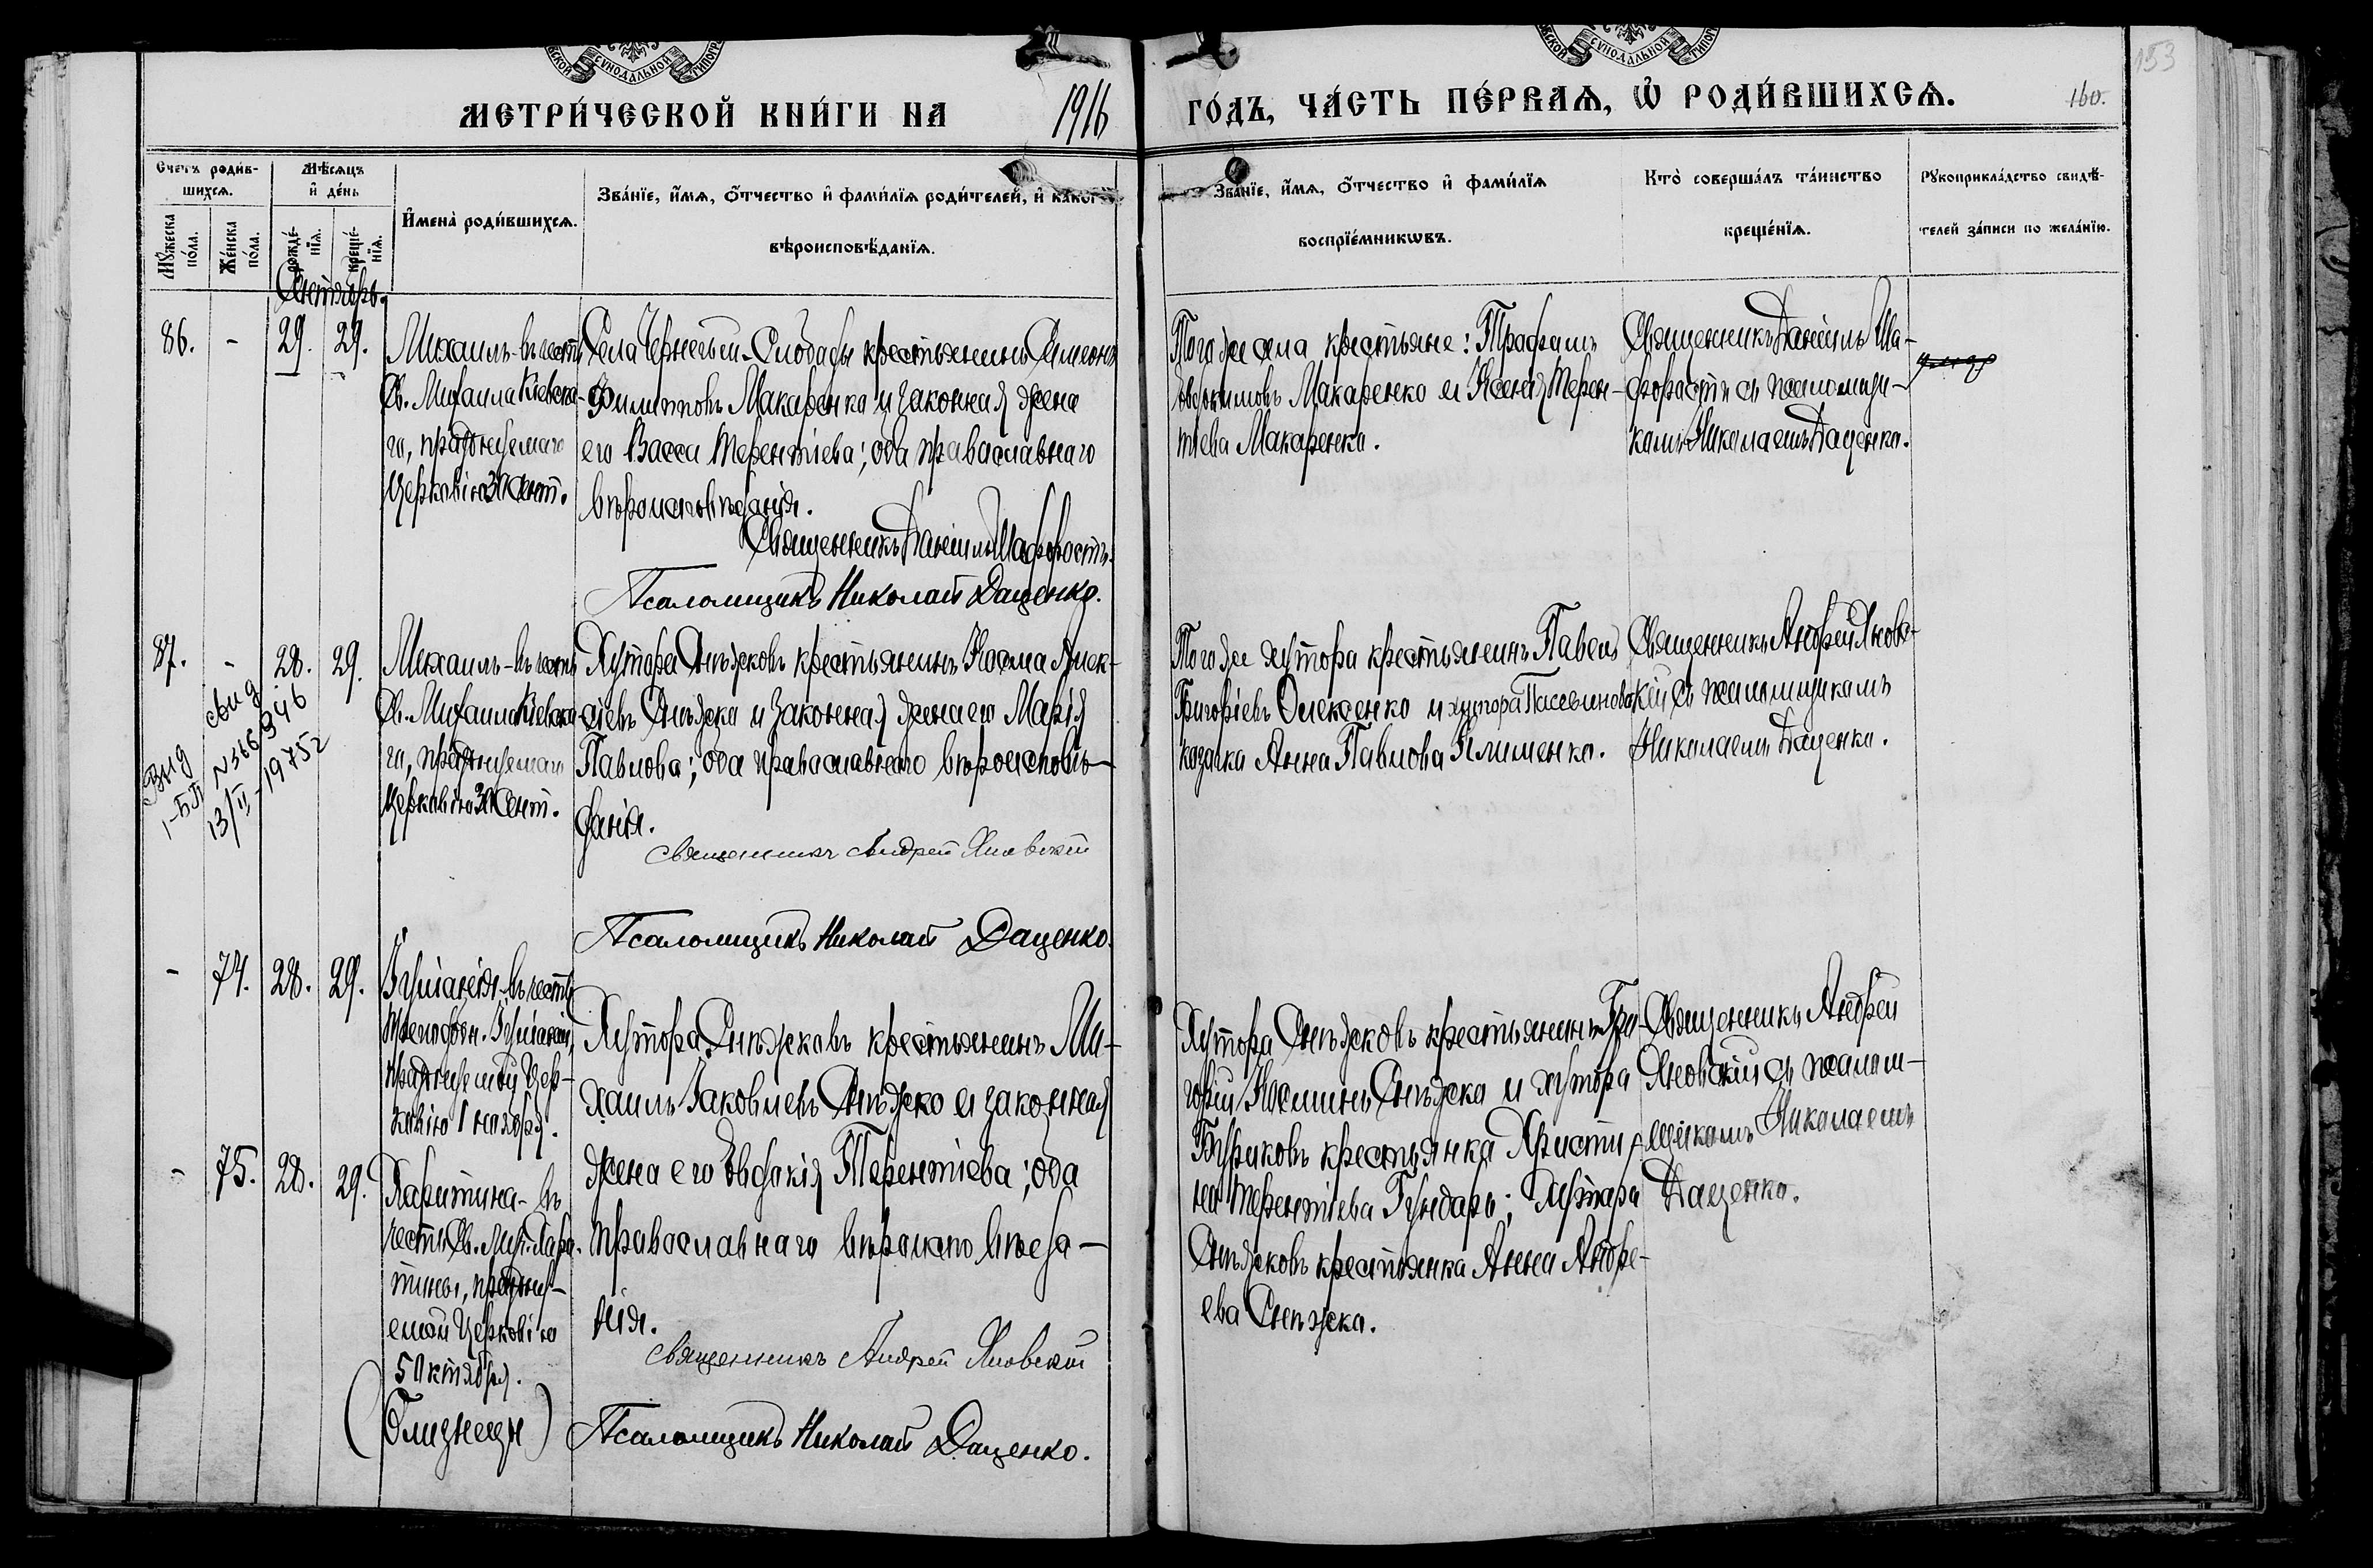 МЕТРИ́ЧЕСКОЙ КНИ́ГИ НА 1916 ГО́ДЪ, ЧА́СТЬ ПЕ́РВАѦ, Ѡ РОДИ́ВШИХСѦ.
160.
153
Счетъ родив-
шихсѧ.
Мꙋжеска
пола.
Женска
пола.
Мѣсѧцъ
и день
рожде-
нїѧ.
креще-
нїѧ.
Имена родившихсѧ.
Званїе, имѧ, отчество и фамилїѧ родителей, и какогѡ
вѣроисповѣданїѧ.
Званїе, имѧ, отчество и фамилїѧ
воспрїемникѡвъ.
Кто совершалъ таинство
крещенїѧ.
Рꙋкоприкладство свидѣ-
телей записи по желанїю.
Сентябрь.
86. - 29. 29.
Михаилъ-въ честь
Св. Михаила Кіевска-
го, празднуемаго
Церковію 30 Сент.
Села Чернечьей-Слободы крестьянинъ Симеонъ
Филиповъ Макаренко и законная жена
его Васса Терентіева; оба православнаго
вѣроисповѣданія.
Священникъ Даніилъ Шафоростъ.
Псаломщикъ Николай Даценко.
Того же села крестьяне: Трофимъ
Евдокимовъ Макаренко и Ксенія Терен-
тіева Макаренко.
Священникъ Даніилъ Ша-
форостъ съ псаломщи-
комъ Николаемъ Даценко.
87. - 28. 29.
Выд свид
I-БП №366946
13/II-1975г
Михаилъ-въ честь
Св. Михаила Кіевска-
го, празднуемаго
Церковію 30 Сент.
Хутора Снѣжковъ крестьянинъ Косма Алек-
сіевъ Снѣжко и законная жена его Марія
Павлова; оба православнаго вѣроисповѣ-
данія.
Священникъ Андрей Яновскій
Псаломщикъ Николай Даценко.
Того же хутора крестьянинъ Павелъ
Григоріевъ Олексенко и хутора
казачка Анна Павлова Клименко.
Священникъ Андрей Яновс-
кій съ псаломщикомъ
Николаемъ Даценко.
- 74. 28. 29.
Іуліанія-въ честь
Преподобн. Іуліаніи,
празднуемой Цер-
ковію 1 ноября.
Хутора Снѣжковъ крестьянинъ Ми-
хаилъ Іаковлевъ Снѣжко и законная
жена его Евдокія Терентіева; оба
православнаго вѣроисповѣда-
нія.
Священникъ Андрей Яновскій
Псаломщикъ Николай Даценко.
Хутора Снѣжковъ крестьянинъ Гри-
горій Косминъ Снѣжко и хутора
Буриковъ крестьянка Христи-
на Терентіева Гундарь; Хутора
Снѣжковъ крестьянка Анна Андре-
ева Снѣжко.
Священникъ Андрей
Яновскій съ псалом-
щикомъ Николаемъ
Даценко.
- 75. 28. 29.
Харитина-въ
честь Св. Муч. Хари-
тины, праздну-
емой Церковію
5 Октября.
(близнецы)